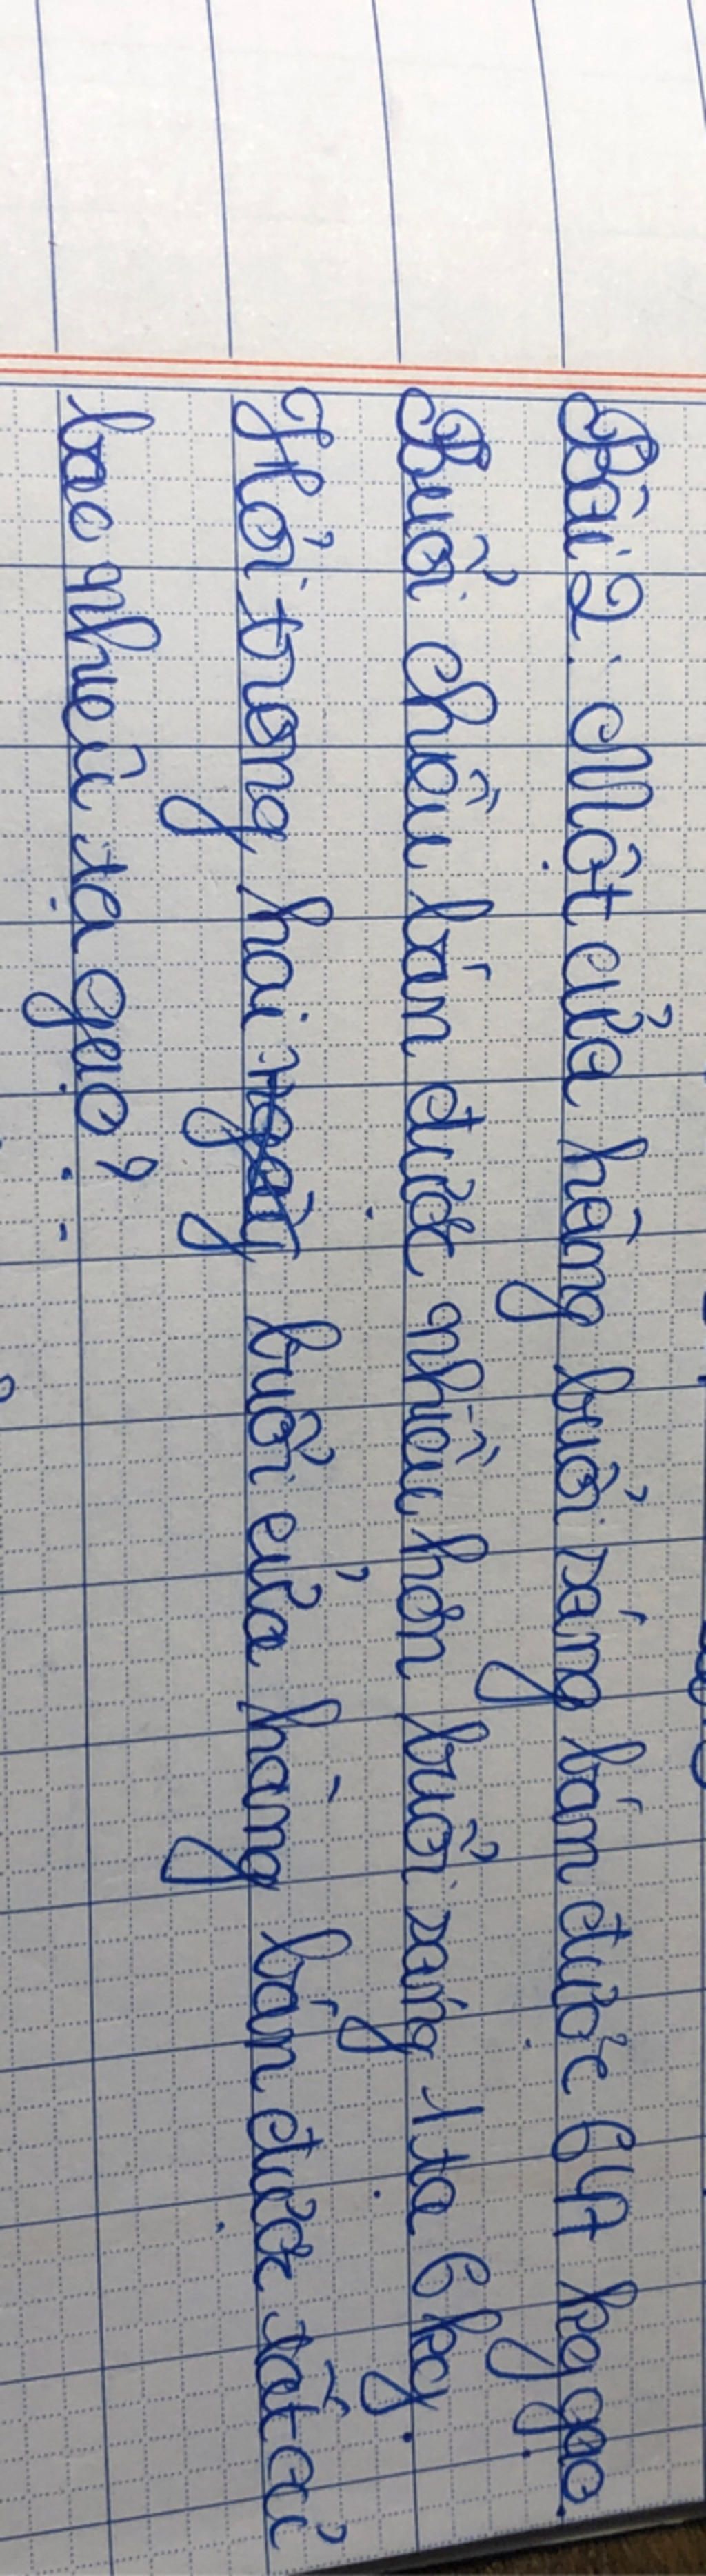 Bài 2. Một cửa hàng buổi sáng bán được 647 kg gạo.
Buổi chiều bán được nhiều hơn buổi sáng 1 tạ 6 kg.
Hỏi trong hai buổi cửa hàng bán được tất cả
bao nhiêu tạ gạo?